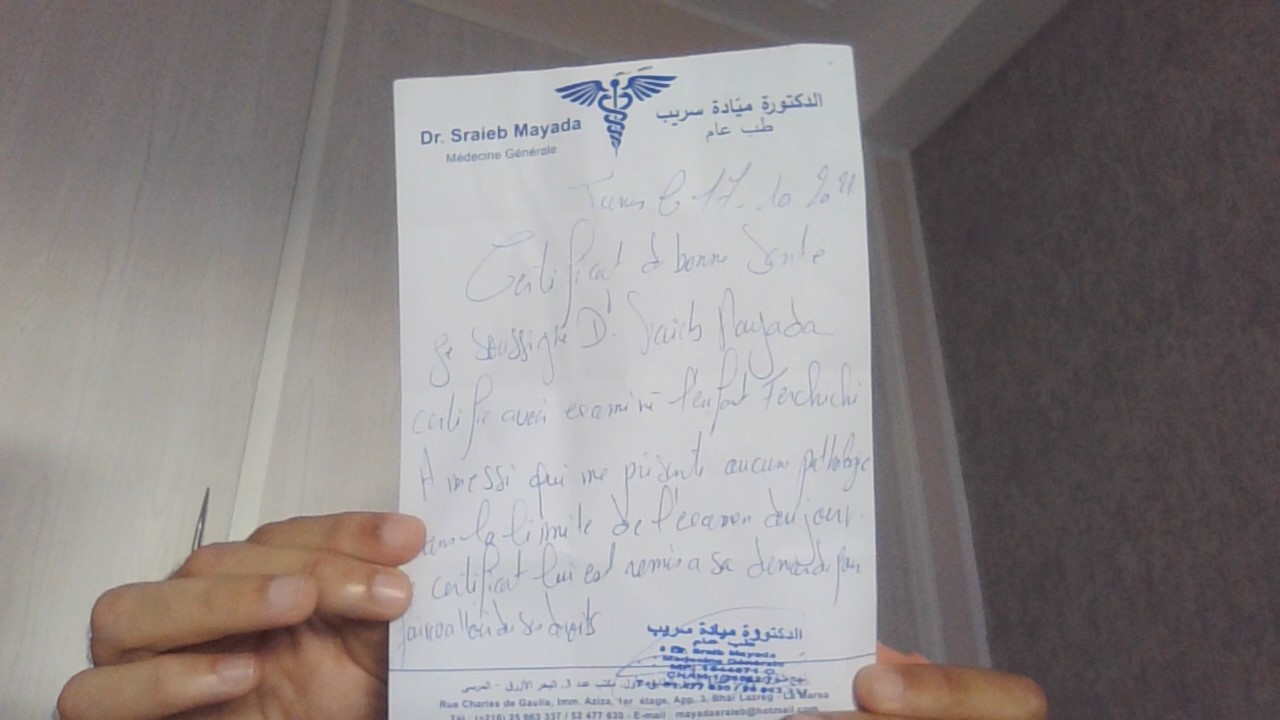 Dr. Sraieb Mayada
Médecine Générale
الدكتورة ميّادة سريب
طب عام
Tunis le 17.10.2021
Certificat de bonne Santé
Je soussigné Dr. Sraieb Mayada
certifie avoir examiné l'enfant Ferchichi
qui ne présente aucune pathologie
dans la limite de l'examen du jour.
certificat lui est remis a sa demande pour
faire valoir de ses droits
الدكتورة ميادة سريب
طب عام
Dr. Sraieb Mayada
Médecine Générale
مكتب عدد 3، البحر الأزرق - المرسى
Rue Charles de Gaulle, Imm. Aziza, 1er étage, App. 3, Bhar Lazreg - La Marsa
Tél : (+216) 25 863 337 / 52 477 630 - E-mail : mayadasraieb@hotmail.com